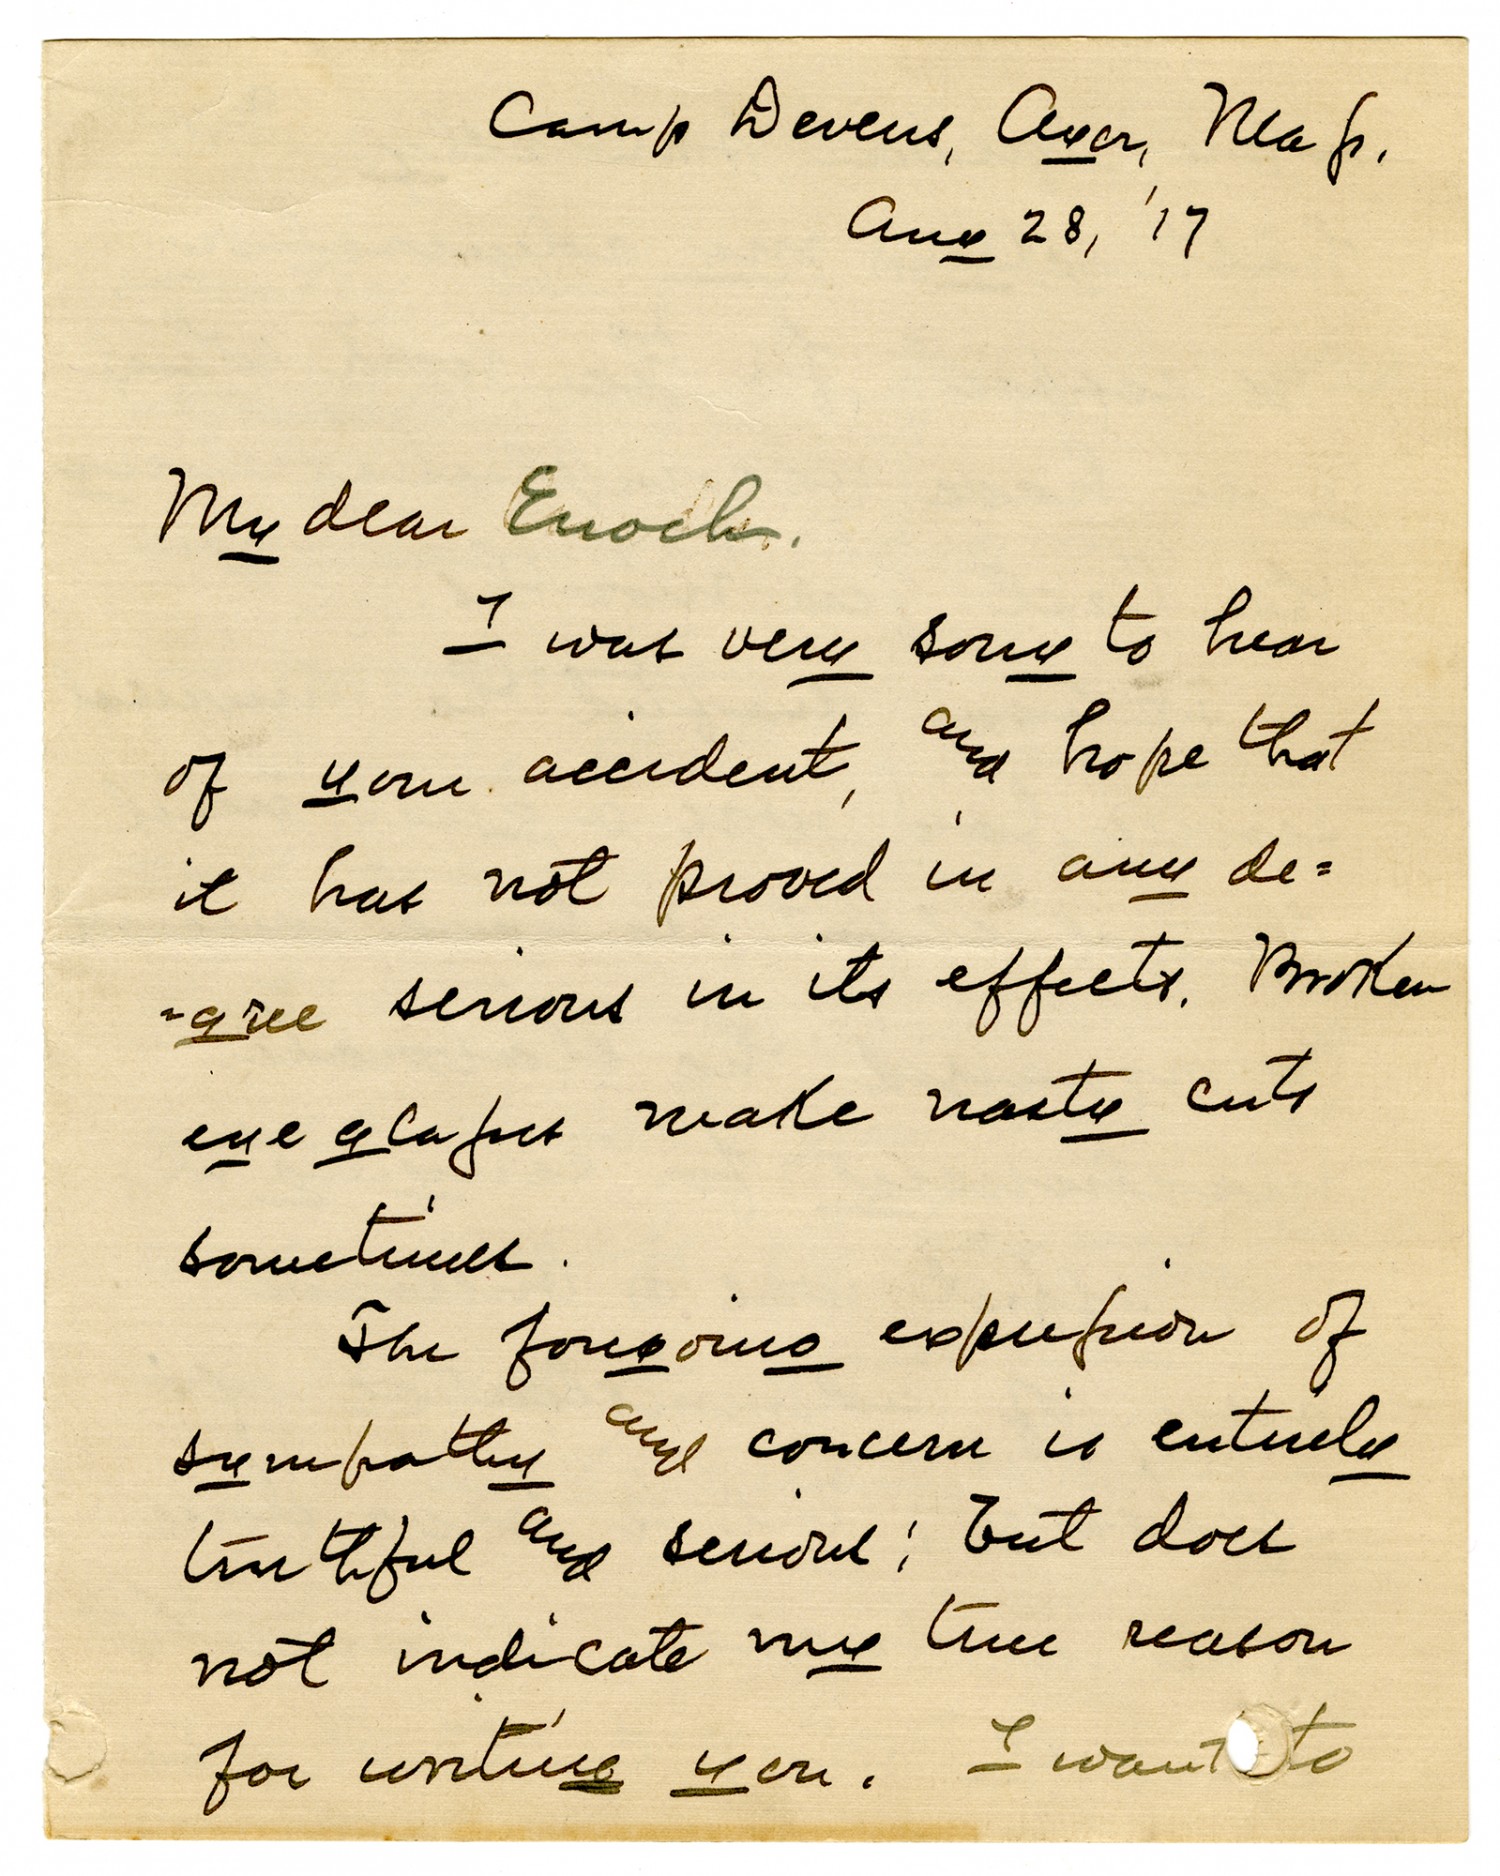 Camp Devens, Ayer, Mass.
Aug 28, '17
My dear Enoch.
I was very sorry to hear
of your accident, and hope that
it has not proved in any de=
=gree serious in its effects. Broken
eye glasses make nasty cuts
sometimes.
The foregoing expression of
sympathy and concern is entirely
truthful and serious; but does
not indicate my true reason
for writing you. I want to